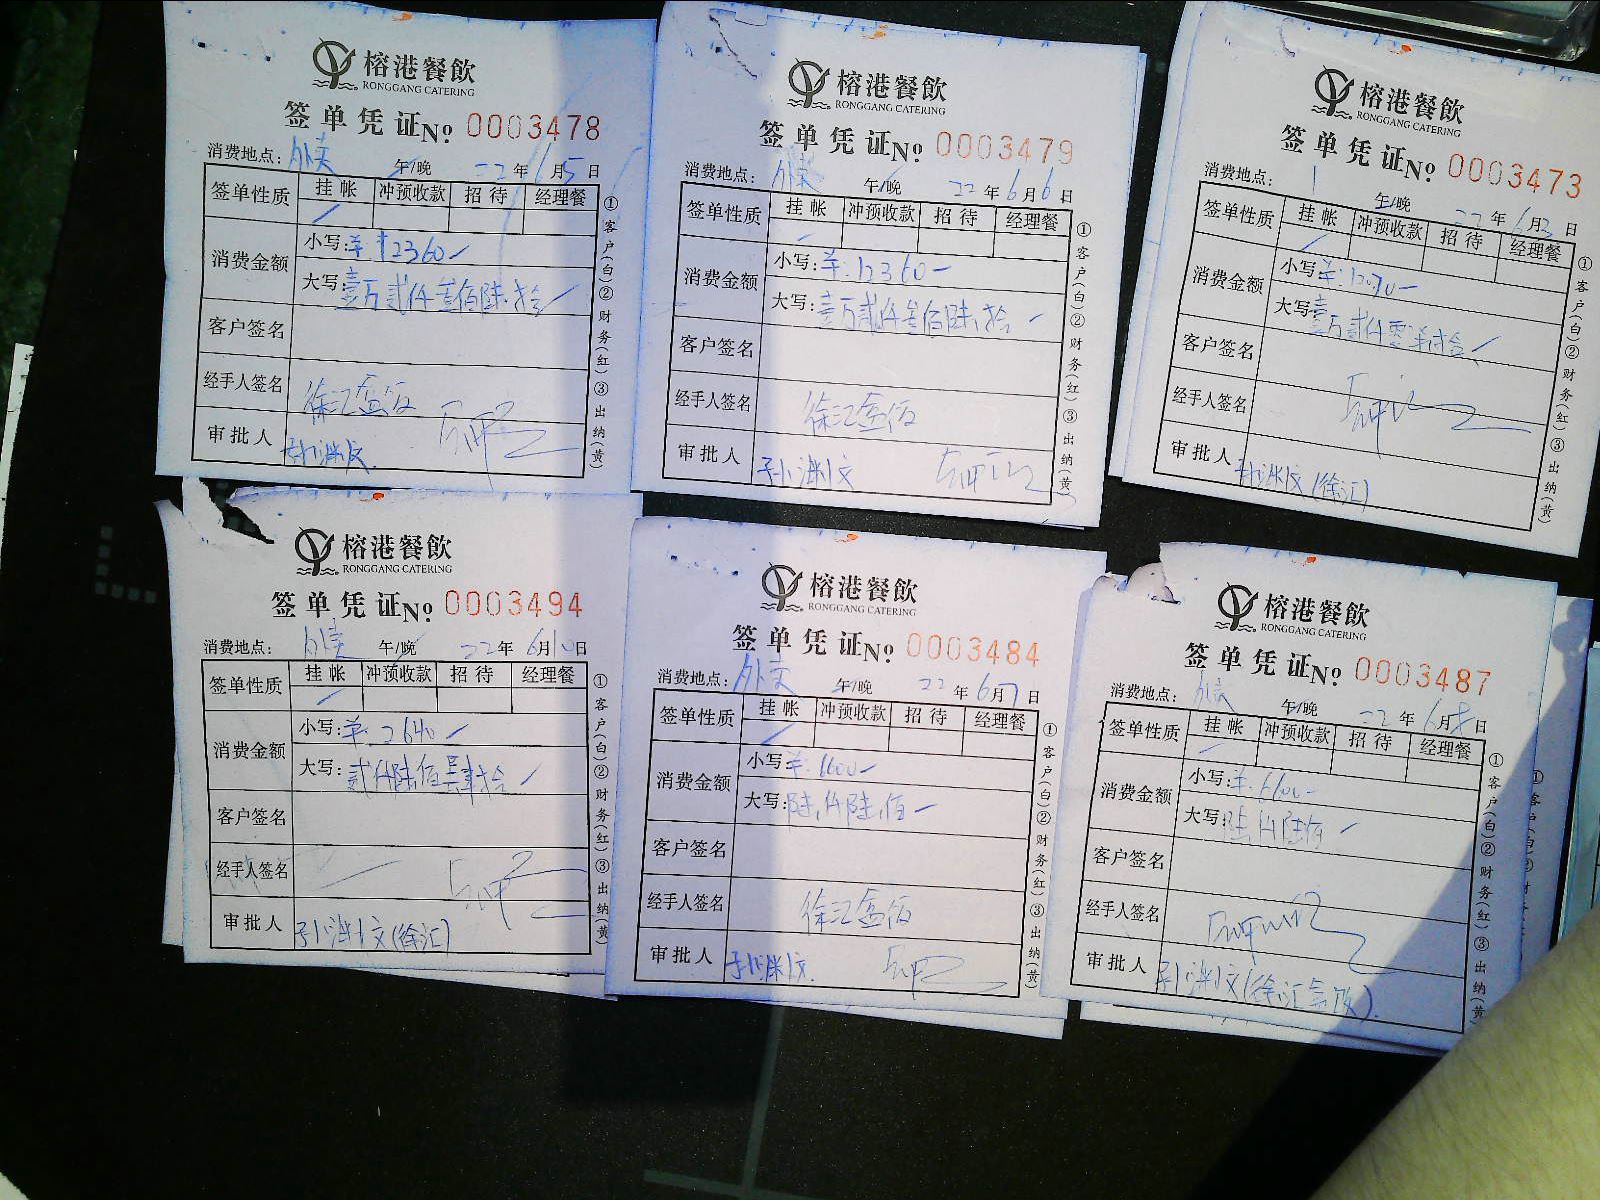 榕港餐飲
RONGGANG CATERING
签单凭证No 0003478
消费地点: 外卖 午/晚 22年6月5日
签单性质 挂帐 冲预收款 招待 经理餐
消费金额 小写: 羊 12360
大写: 壹万贰仟叁佰陆拾
客户签名
经手人签名 徐汇盒饭
审批人 孙渊文
①客户(白)②财务(红)③出纳(黄)
榕港餐飲
RONGGANG CATERING
签单凭证No 0003479
消费地点: 外卖 午/晚 22年6月6日
签单性质 挂帐 冲预收款 招待 经理餐
消费金额 小写: 羊:12360
大写: 壹万贰仟叁佰陆拾
客户签名
经手人签名 徐汇盒饭
审批人 孙渊文
①客户(白)②财务(红)③出纳(黄)
榕港餐飲
RONGGANG CATERING
签单凭证No 0003473
消费地点: 午/晚 22年6月3日
签单性质 挂帐 冲预收款 招待 经理餐
消费金额 小写: 羊:12070
大写: 壹万贰仟零柒拾
客户签名
经手人签名
审批人 孙渊文(徐汇)
①客户(白)②财务(红)③出纳(黄)
榕港餐飲
RONGGANG CATERING
签单凭证No 0003494
消费地点: 外卖 午/晚 22年6月10日
签单性质 挂帐 冲预收款 招待 经理餐
消费金额 小写: 羊:2640
大写: 贰仟陆佰肆拾
客户签名
经手人签名
审批人 孙渊文(徐汇)
①客户(白)②财务(红)③出纳(黄)
榕港餐飲
RONGGANG CATERING
签单凭证No 0003484
消费地点: 外卖 午/晚 22年6月7日
签单性质 挂帐 冲预收款 招待 经理餐
消费金额 小写: 羊:6600
大写: 陆仟陆佰
客户签名
经手人签名 徐汇盒饭
审批人 孙渊文
①客户(白)②财务(红)③出纳(黄)
榕港餐飲
RONGGANG CATERING
签单凭证No 0003487
消费地点: 外卖 午/晚 22年6月8日
签单性质 挂帐 冲预收款 招待 经理餐
消费金额 小写: 羊:6600
大写: 陆仟陆佰
客户签名
经手人签名
审批人 孙渊文(徐汇盒饭)
①客户(白)②财务(红)③出纳(黄)